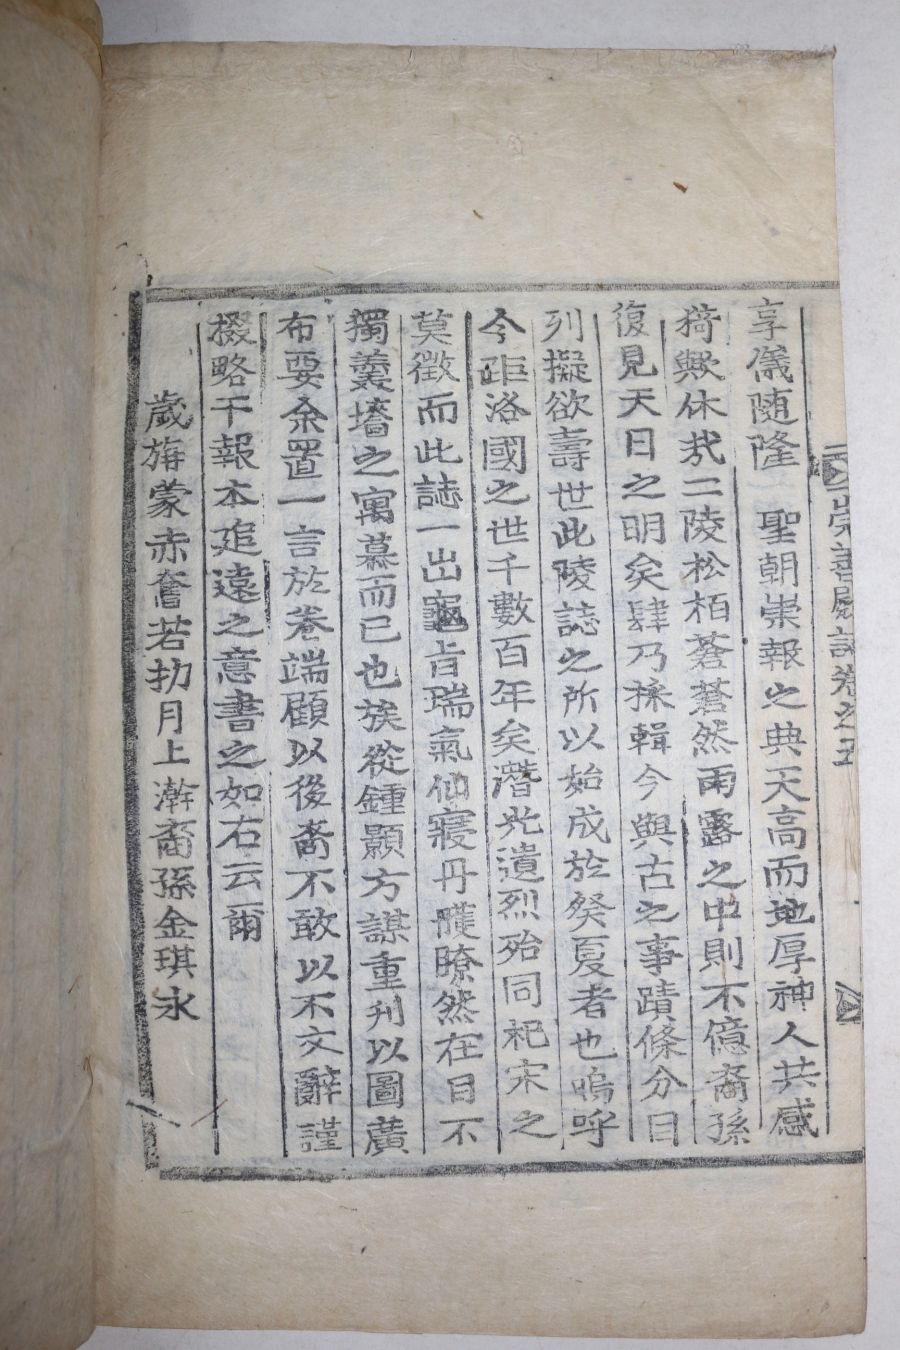 享儀隨隆 聖朝崇報之典天高而地厚神人共感
猗歟休哉二陵松栢蒼蒼然雨露之中則不億裔孫
復見天日之明矣肆乃採輯今與古之事蹟條分目
列擬欲壽世此陵誌之所以始成於癸夏者也嗚呼
今距洛國之世千數百年矣潛光遺烈殆同杞宋之
莫徵而此誌一出龜旨瑞氣仙寢丹雘瞭然在目不
獨羹墻之寓慕而已也族從鍾顯方謀重刊以圖廣
布要余置一言於卷端顧以後裔不敢以不文辭謹
掇略干報本追遠之意書之如右云爾
歲旃蒙赤奮若扐月上澣裔孫金琪永
崇善殿誌卷之五